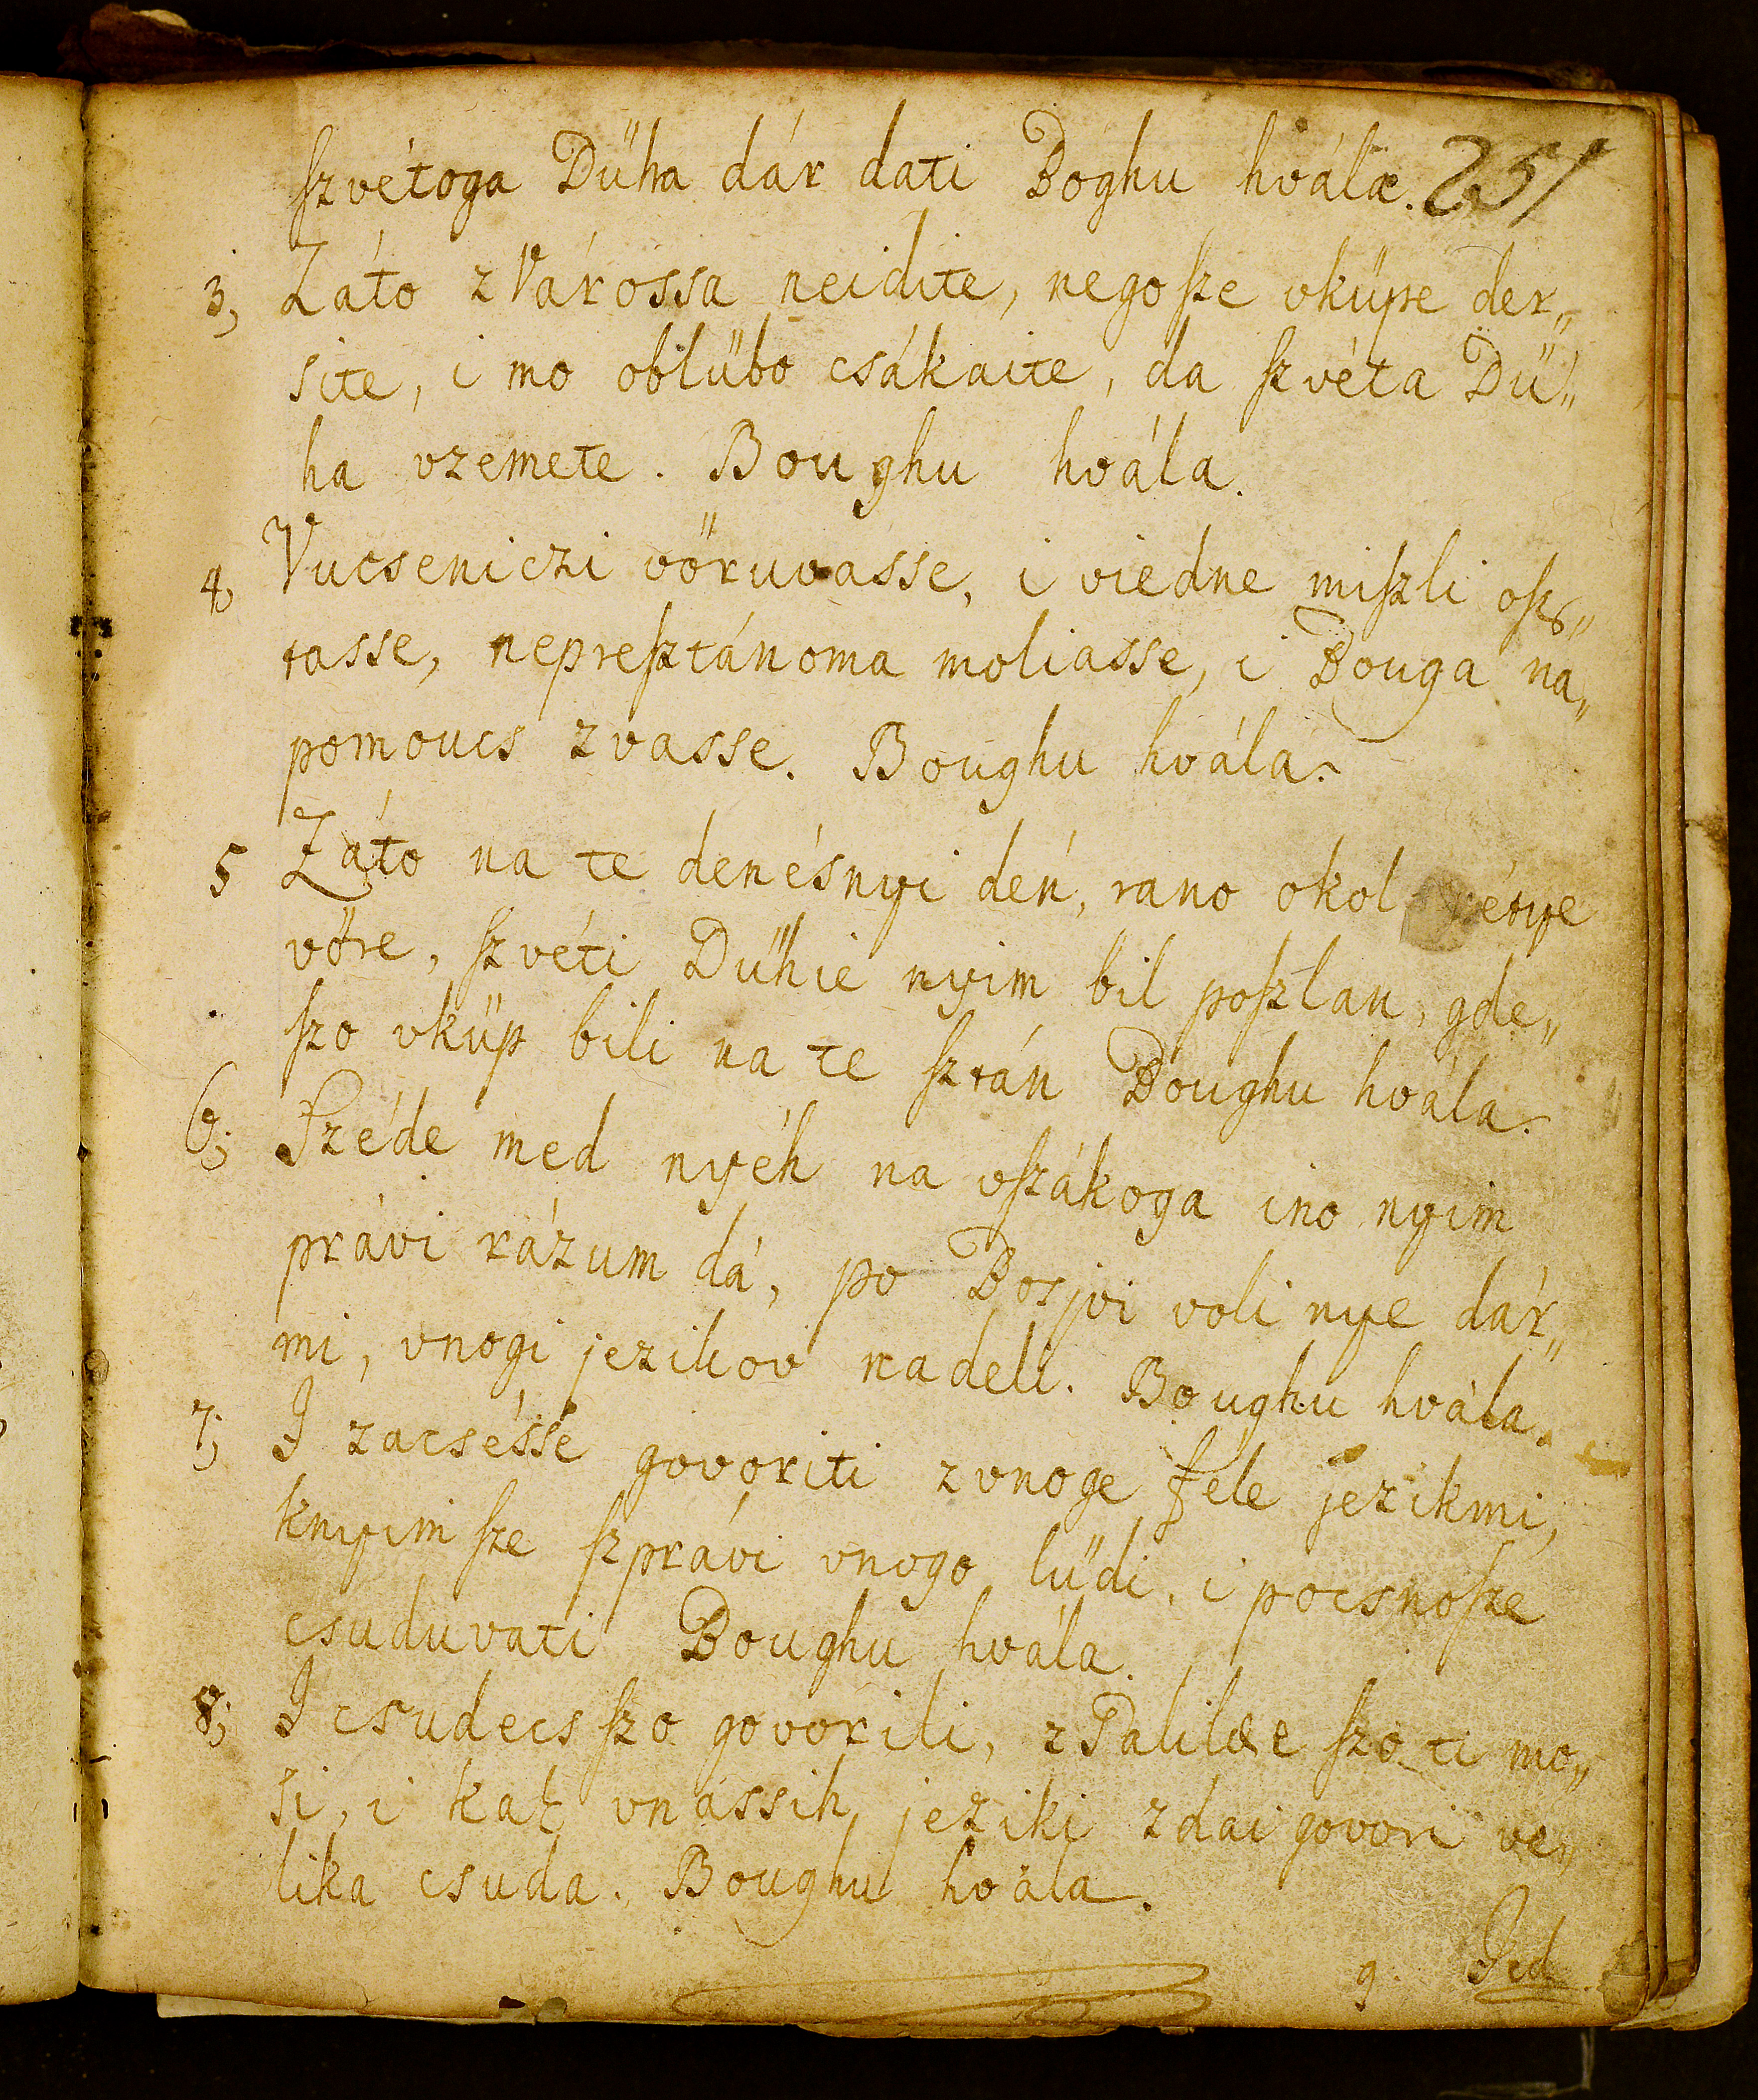 ſzvétoga Dűha dár dati Boghu hvála. 251
3, Záto z Várossa neidite, nego ſze vküpe der„
site, i mo oblűbo csákaite, da ſzvéta Dű„
ha vzemete. Boughu hvála.
4, Vucseniczi vöruvasse, i viedne miſzli oſz„
tasse, nepreſztánoma moliasse, i Bouga na„
pomoucs zvasse. Boughu hvála.
5 Záto na te denésnyi dén, rano okol
vöre, ſzvéti Dűhie nyim bil poſzlan, gde„
ſzo vküp bili na te ſztán Boughu hvála.
6; Széde med nyéh na vſzákoga ino nyim
právi rázum dá, po Bosjvi voli nye dár„
mi, vnogi jezikov nadeli. Boughu hvála.
7; I zacsésse govoriti z vnoge fele jezikmi,
knyim ſze ſzprávi vnogo lűdi, i pocsnoſze
csuduvati Boughu hvála.
8; I csudecs ſzo govorili, z Galilee ſzo ti mo„
si, i kak vnássih jeziki zdai govori ve„
lika csuda. Boughu hvála.
9. Ied